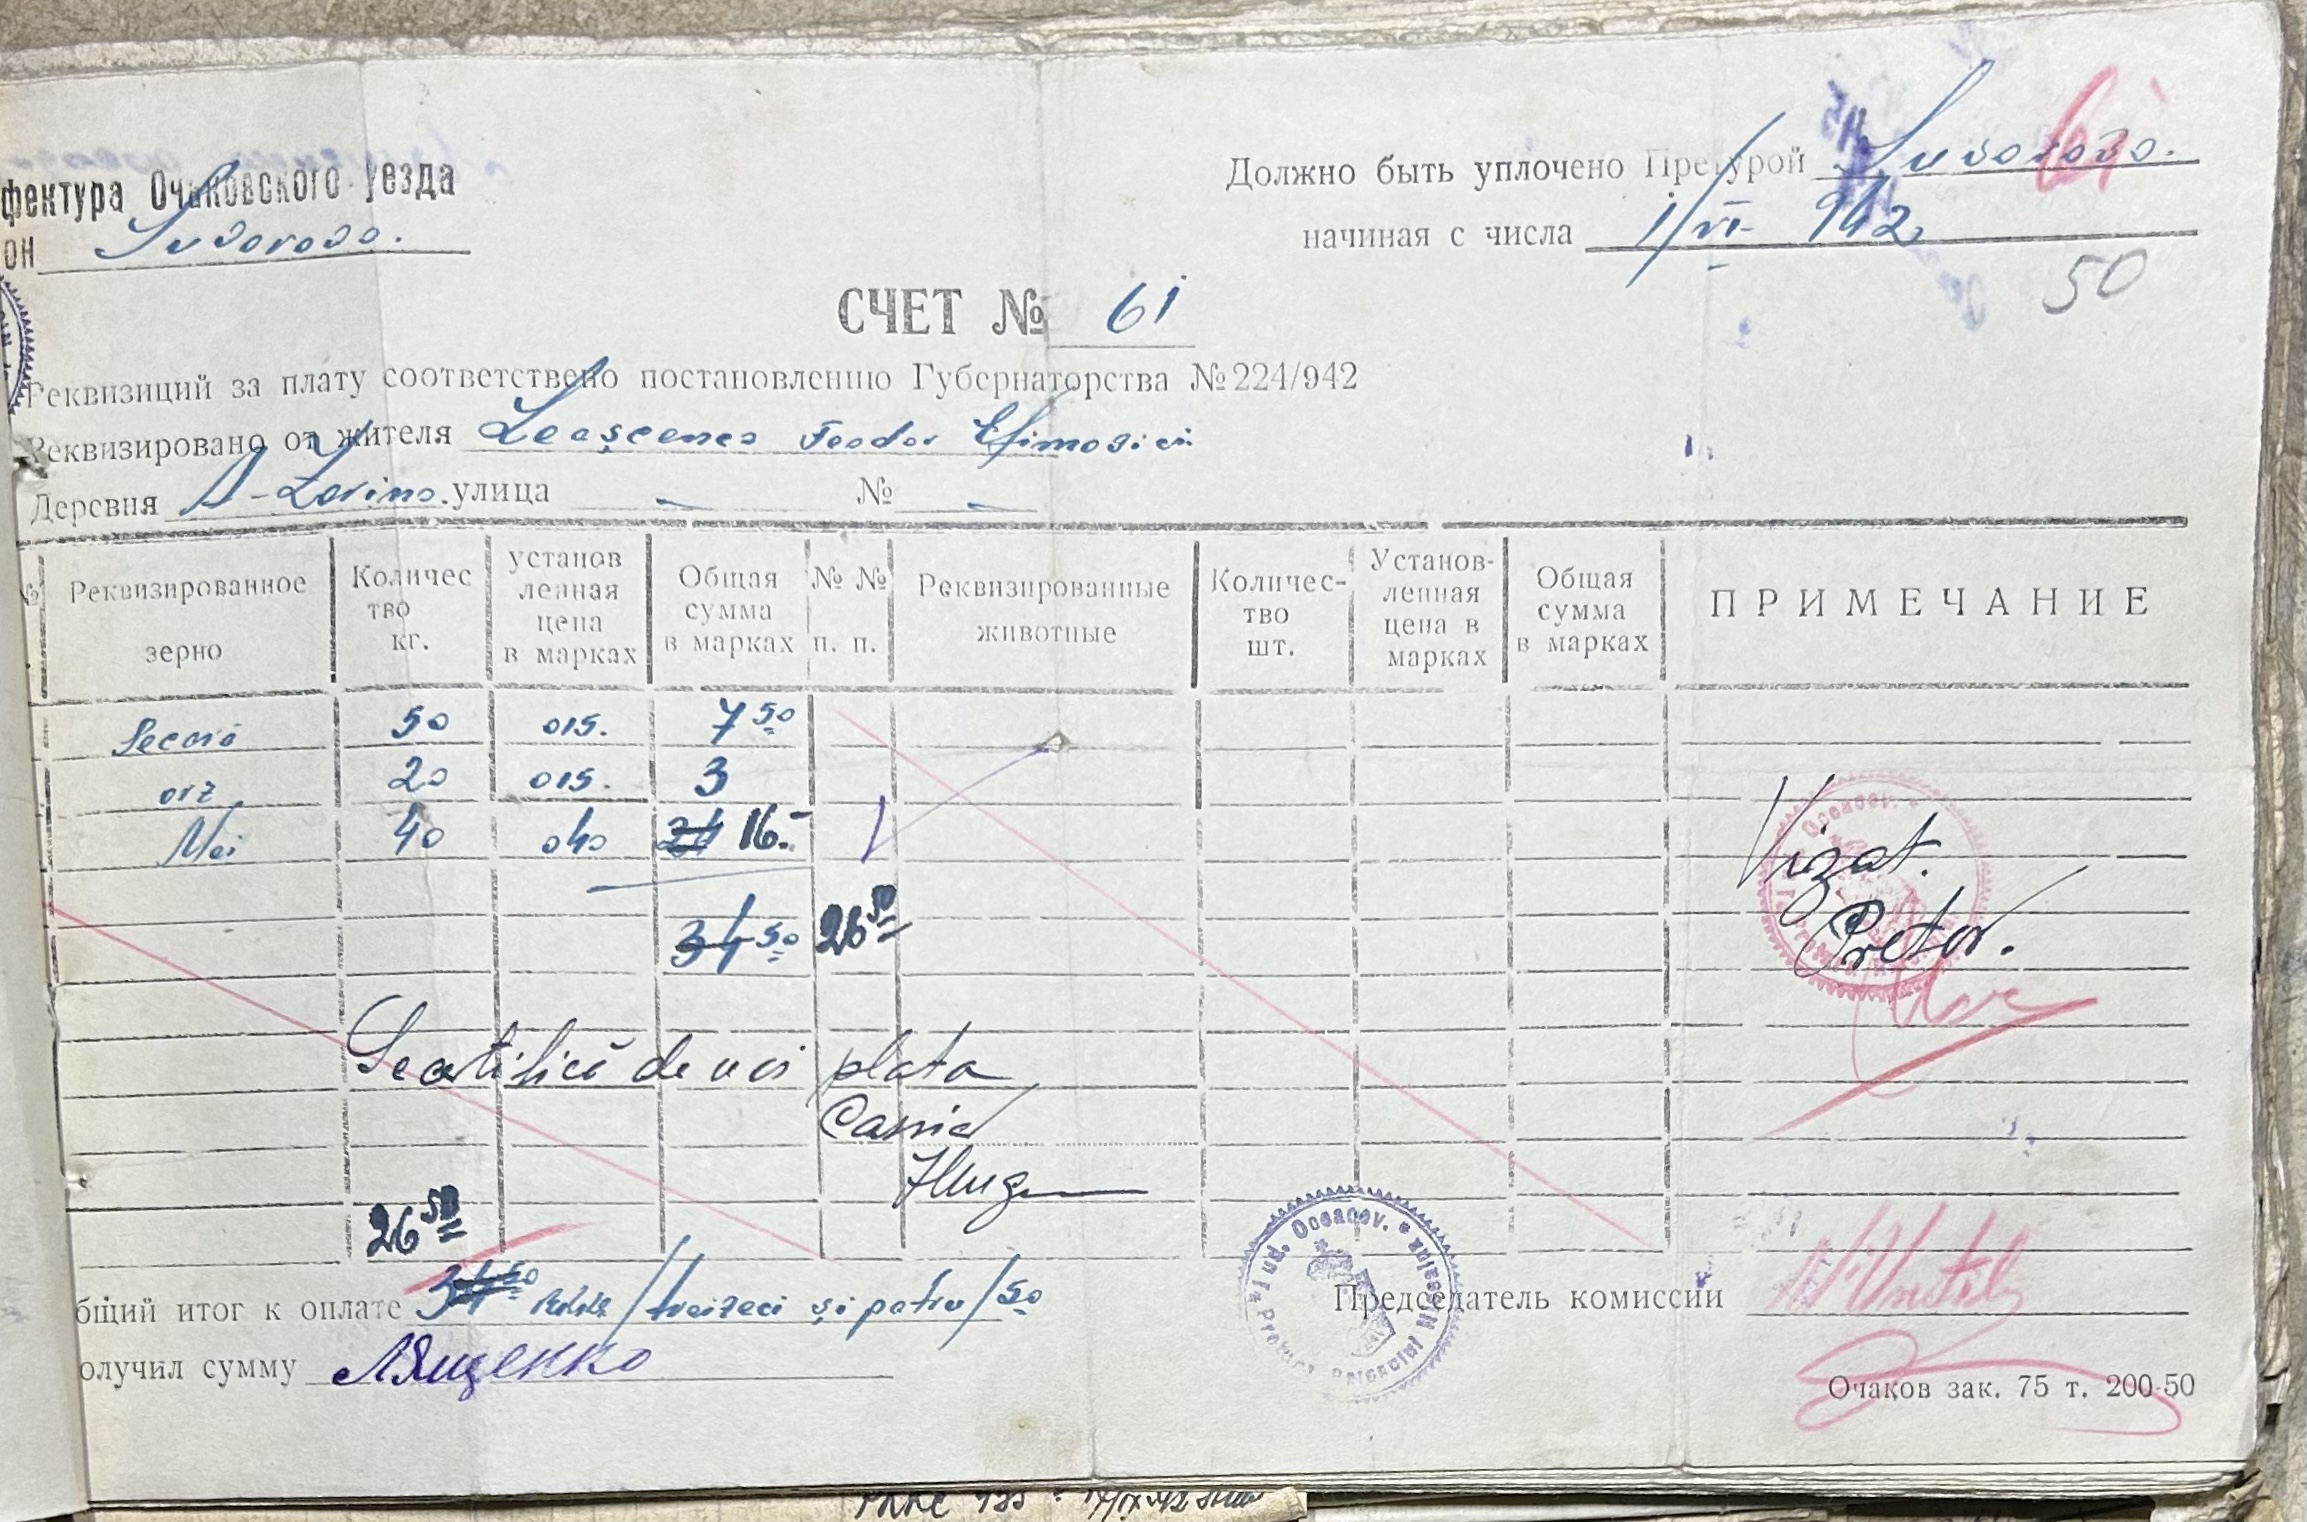 фектура Очаковского уезда
он Suvorovo.
Должно быть уплочено Претурой Suvorovo.
начиная с числа 1/VI 942
61
50
СЧЕТ № 61
Реквизиций за плату соответствено постановлению Губернаторства № 224/942
Реквизировано от жителя Leașcenco Feodor Efimovici
Деревня улица — № —
№ Реквизированное зерно Количес тво кг. установ ленная цена в марках Общая сумма в марках № № п. п. Реквизированные животные Количес-тво шт. Установ-ленная цена в марках Общая сумма в марках ПРИМЕЧАНИЕ
Secară 50 015. 7 50
orz 20 015. 3
Mei 40 040 24 16.-
34 50 26 50
Vizat.
Pretor.
Seartifică de noi plata
Casier
26 50
бщий итог к оплате 34 50 /treizeci și patru/50
олучил сумму Лященко
Председатель комиссии
Jud. Oceacov.
Очаков зак. 75 т. 200-50